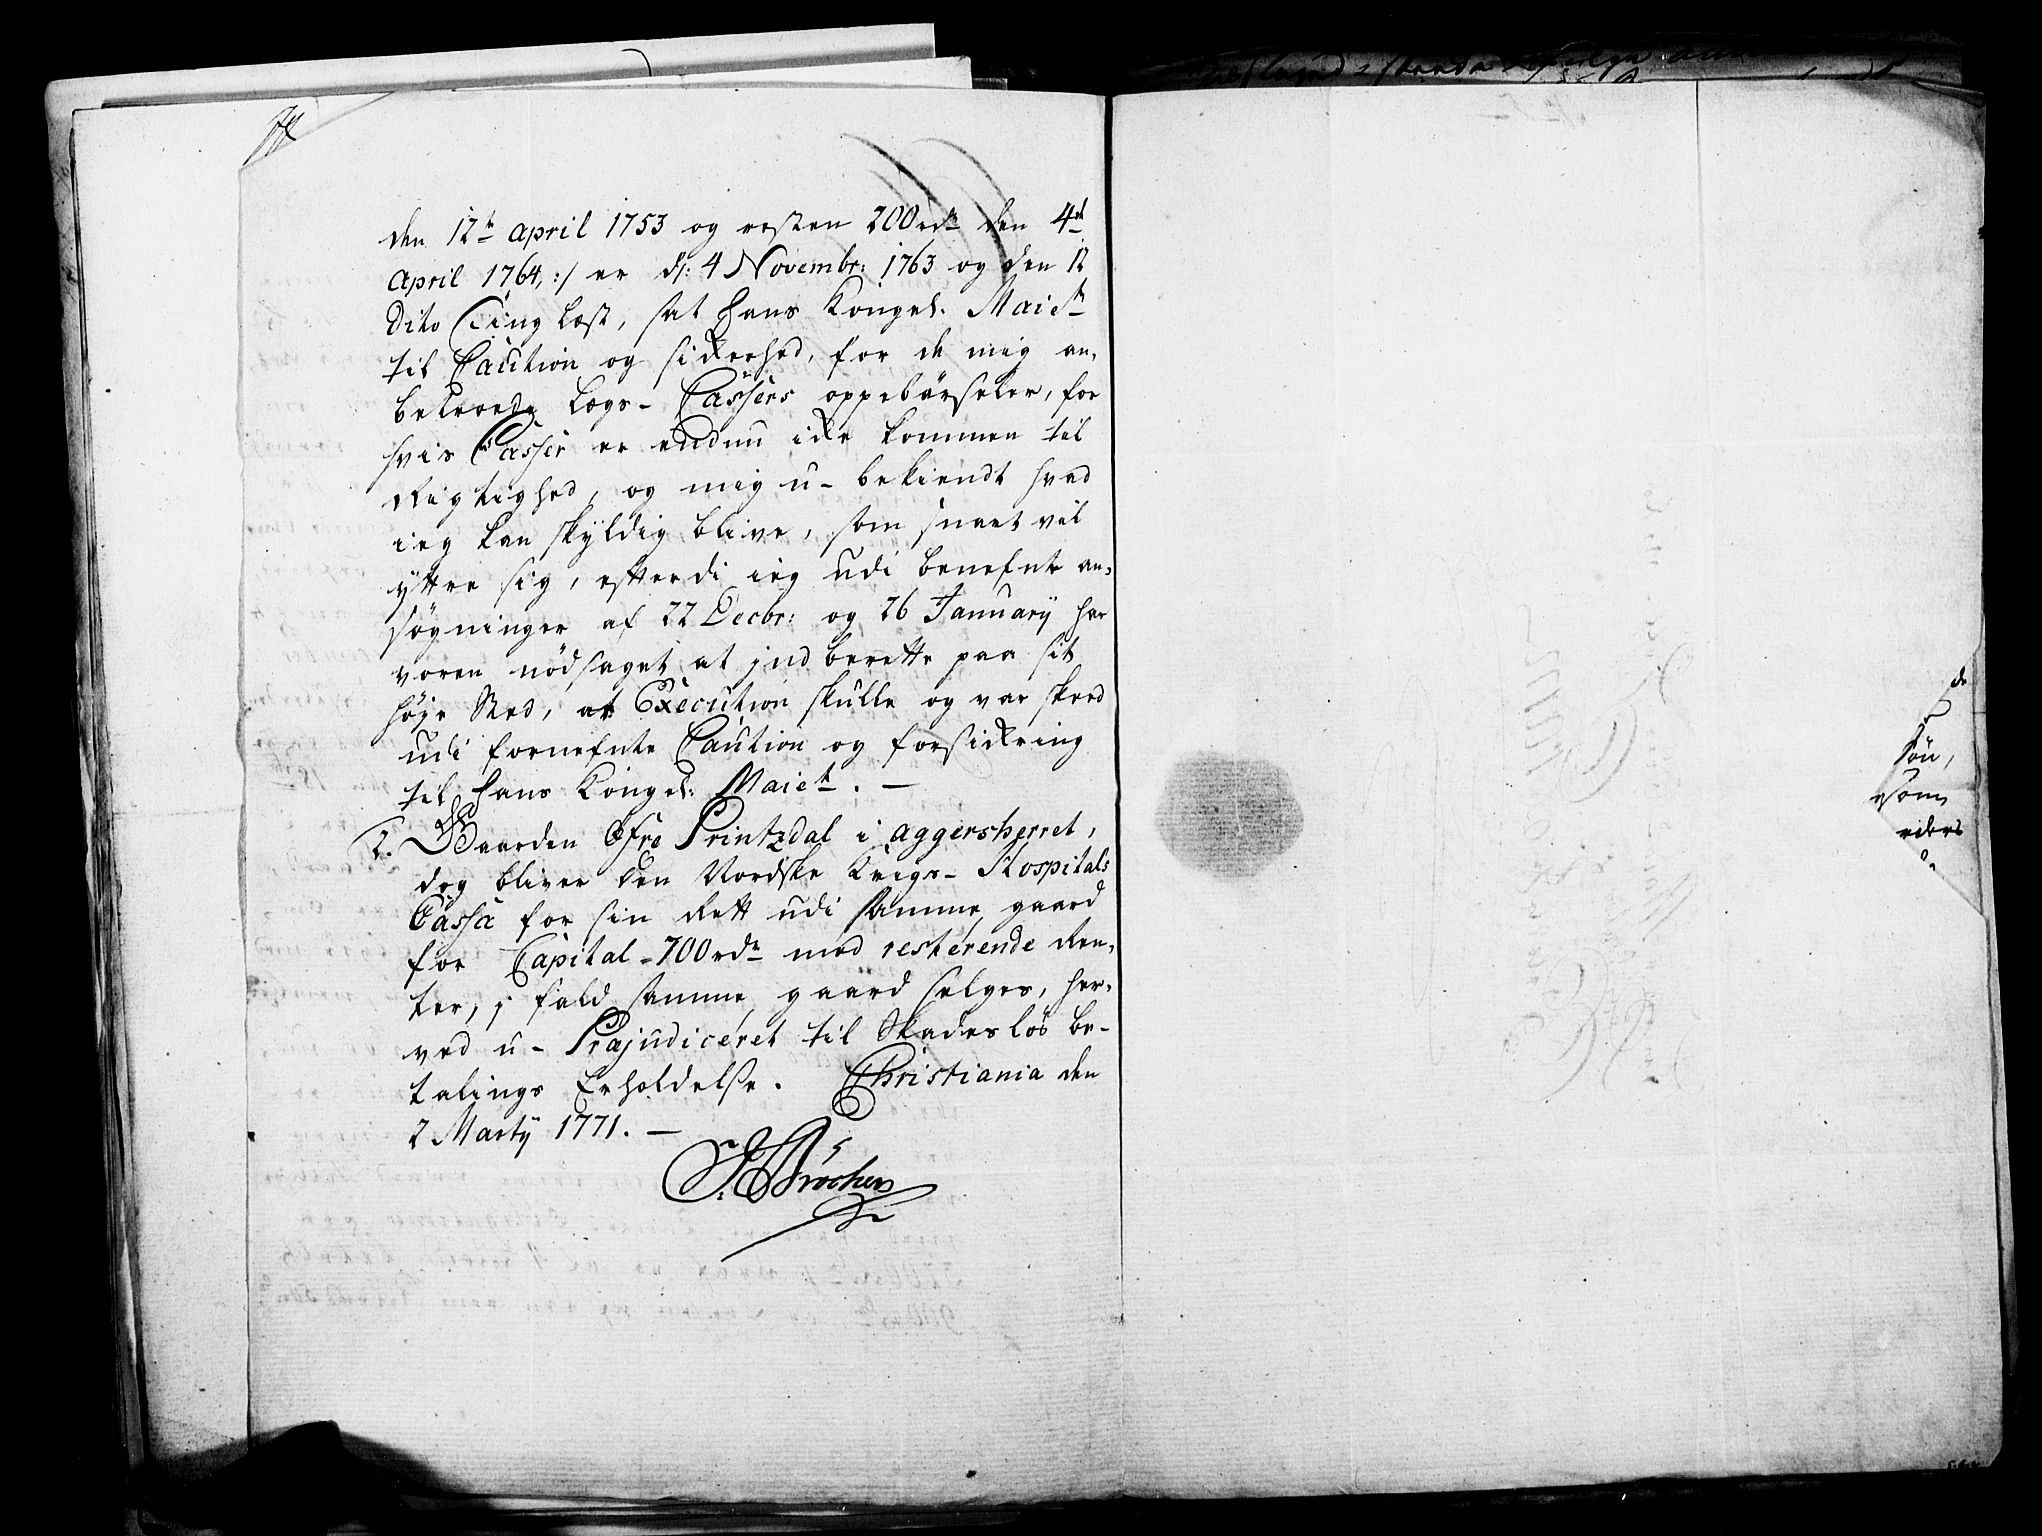 den 12te april 1753 og resten 200 rdr den 4de
April 1764, :/ er d: 4 Novembr: 1763 og den 12
Dito Ting læst, sat Hans Kongel. Maiet
til Caution og sikerhed, for de mig an-
betroede Lægs- Cassers oppebörseler, for
hvis Casser er endnu ike kommen til
Rigtighed, og mig u- bekiendt hvad
ieg kan skyldig blive, som snart vil
yttre sig, efterdi ieg udi benefnte an-
søgninger af 22 Decbr: og 26 January har
voren nödsaget at jndberette paa sit
höye Sted, at Execution skulle og var skeed
udi fornefnte Caution og forsikring
til Hans Kongel: Maiet. —
2. Gaarden Öfre Printzdal i aggersherret,
dog bliver den Nordske Krigs- Hospitals
Cassa for sin Rett udi samme gaard
for Capital 700 rdr med resterende Ren-
ter, j fald samme gaard selges, her-
ved u- Præjudiceret til Skadeslös be-
talings Erholdelse. Christiania den
2 Marty 1771. —
söu,
som